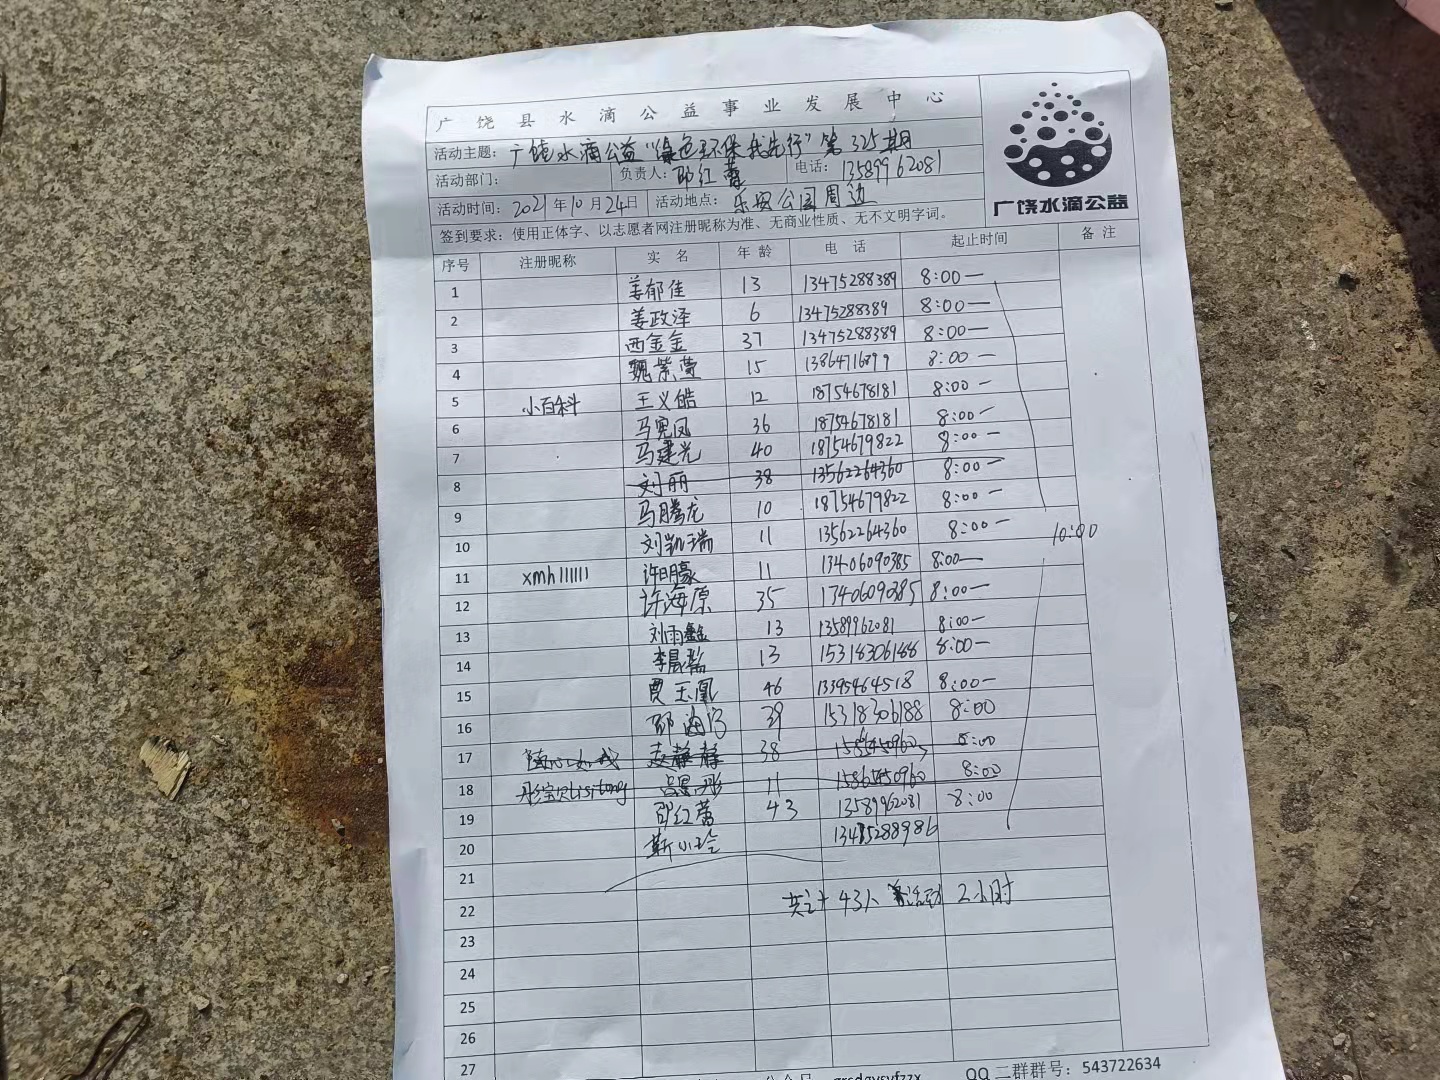 广饶县水滴公益事业发展中心
活动主题：广饶水滴公益“绿色环保我先行”第325期
活动部门： 负责人：邵红蕾 电话：13589962081
活动时间：2021年10月24日 活动地点：乐安公园周边
广饶水滴公益
签到要求：使用正体字、以志愿者网注册昵称为准、无商业性质、无不文明字词。
序号 注册昵称 实名 年龄 电话 起止时间 备注
1 姜郁佳 13 13475288389 8:00—
2 姜政泽 6 13475288389 8:00—
3 西金金 37 13475288389 8:00—
4 魏紫萱 15 13864716899 8:00—
5 小百科 王义皓 12 18754678181 8:00—
6 马宪凤 36 18754678181 8:00—
7 马建光 40 18754679822 8:00—
8 刘丽 38 13562264360 8:00—
9 马腾龙 10 18754679822 8:00—
10 刘凯瑞 11 13562264360 8:00—
10:00
11 xmh111111 许明豪 11 13406090385 8:00—
12 许海原 35 13406090385 8:00—
13 刘雨鑫 13 13589962081 8:00—
14 李晨 13 15318306188 8:00—
15 贾玉凰 46 13395464518 8:00—
16 邵海 39 15318306188 8:00
17 随心如我 赵静静 38 8:00
18 彤宝贝lisitong 11 15865450960 8:00
19 邵红蕾 43 13589962081 8:00
20 靳小玲 13475288986
21
22 共计43人 活动2小时
23
24
25
26
27
QQ二群群号：543722634